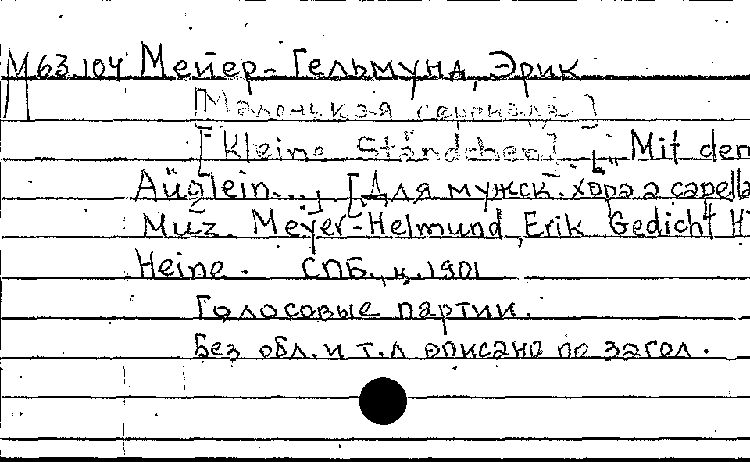 М63.104 Мейер-Гельмунд, Эрик
[Маленькая серенада]
[Kleine Ständchen] „Mit den
Äuglein...“ [Для мужск. хора a capella
Muz. Meyer-Helmund, Erik Gedicht H
Heine. СПБ., ц. 1901
Голосовые партии.
Без обл. и т.л описано по загол.